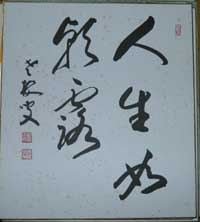 人生如
朝露